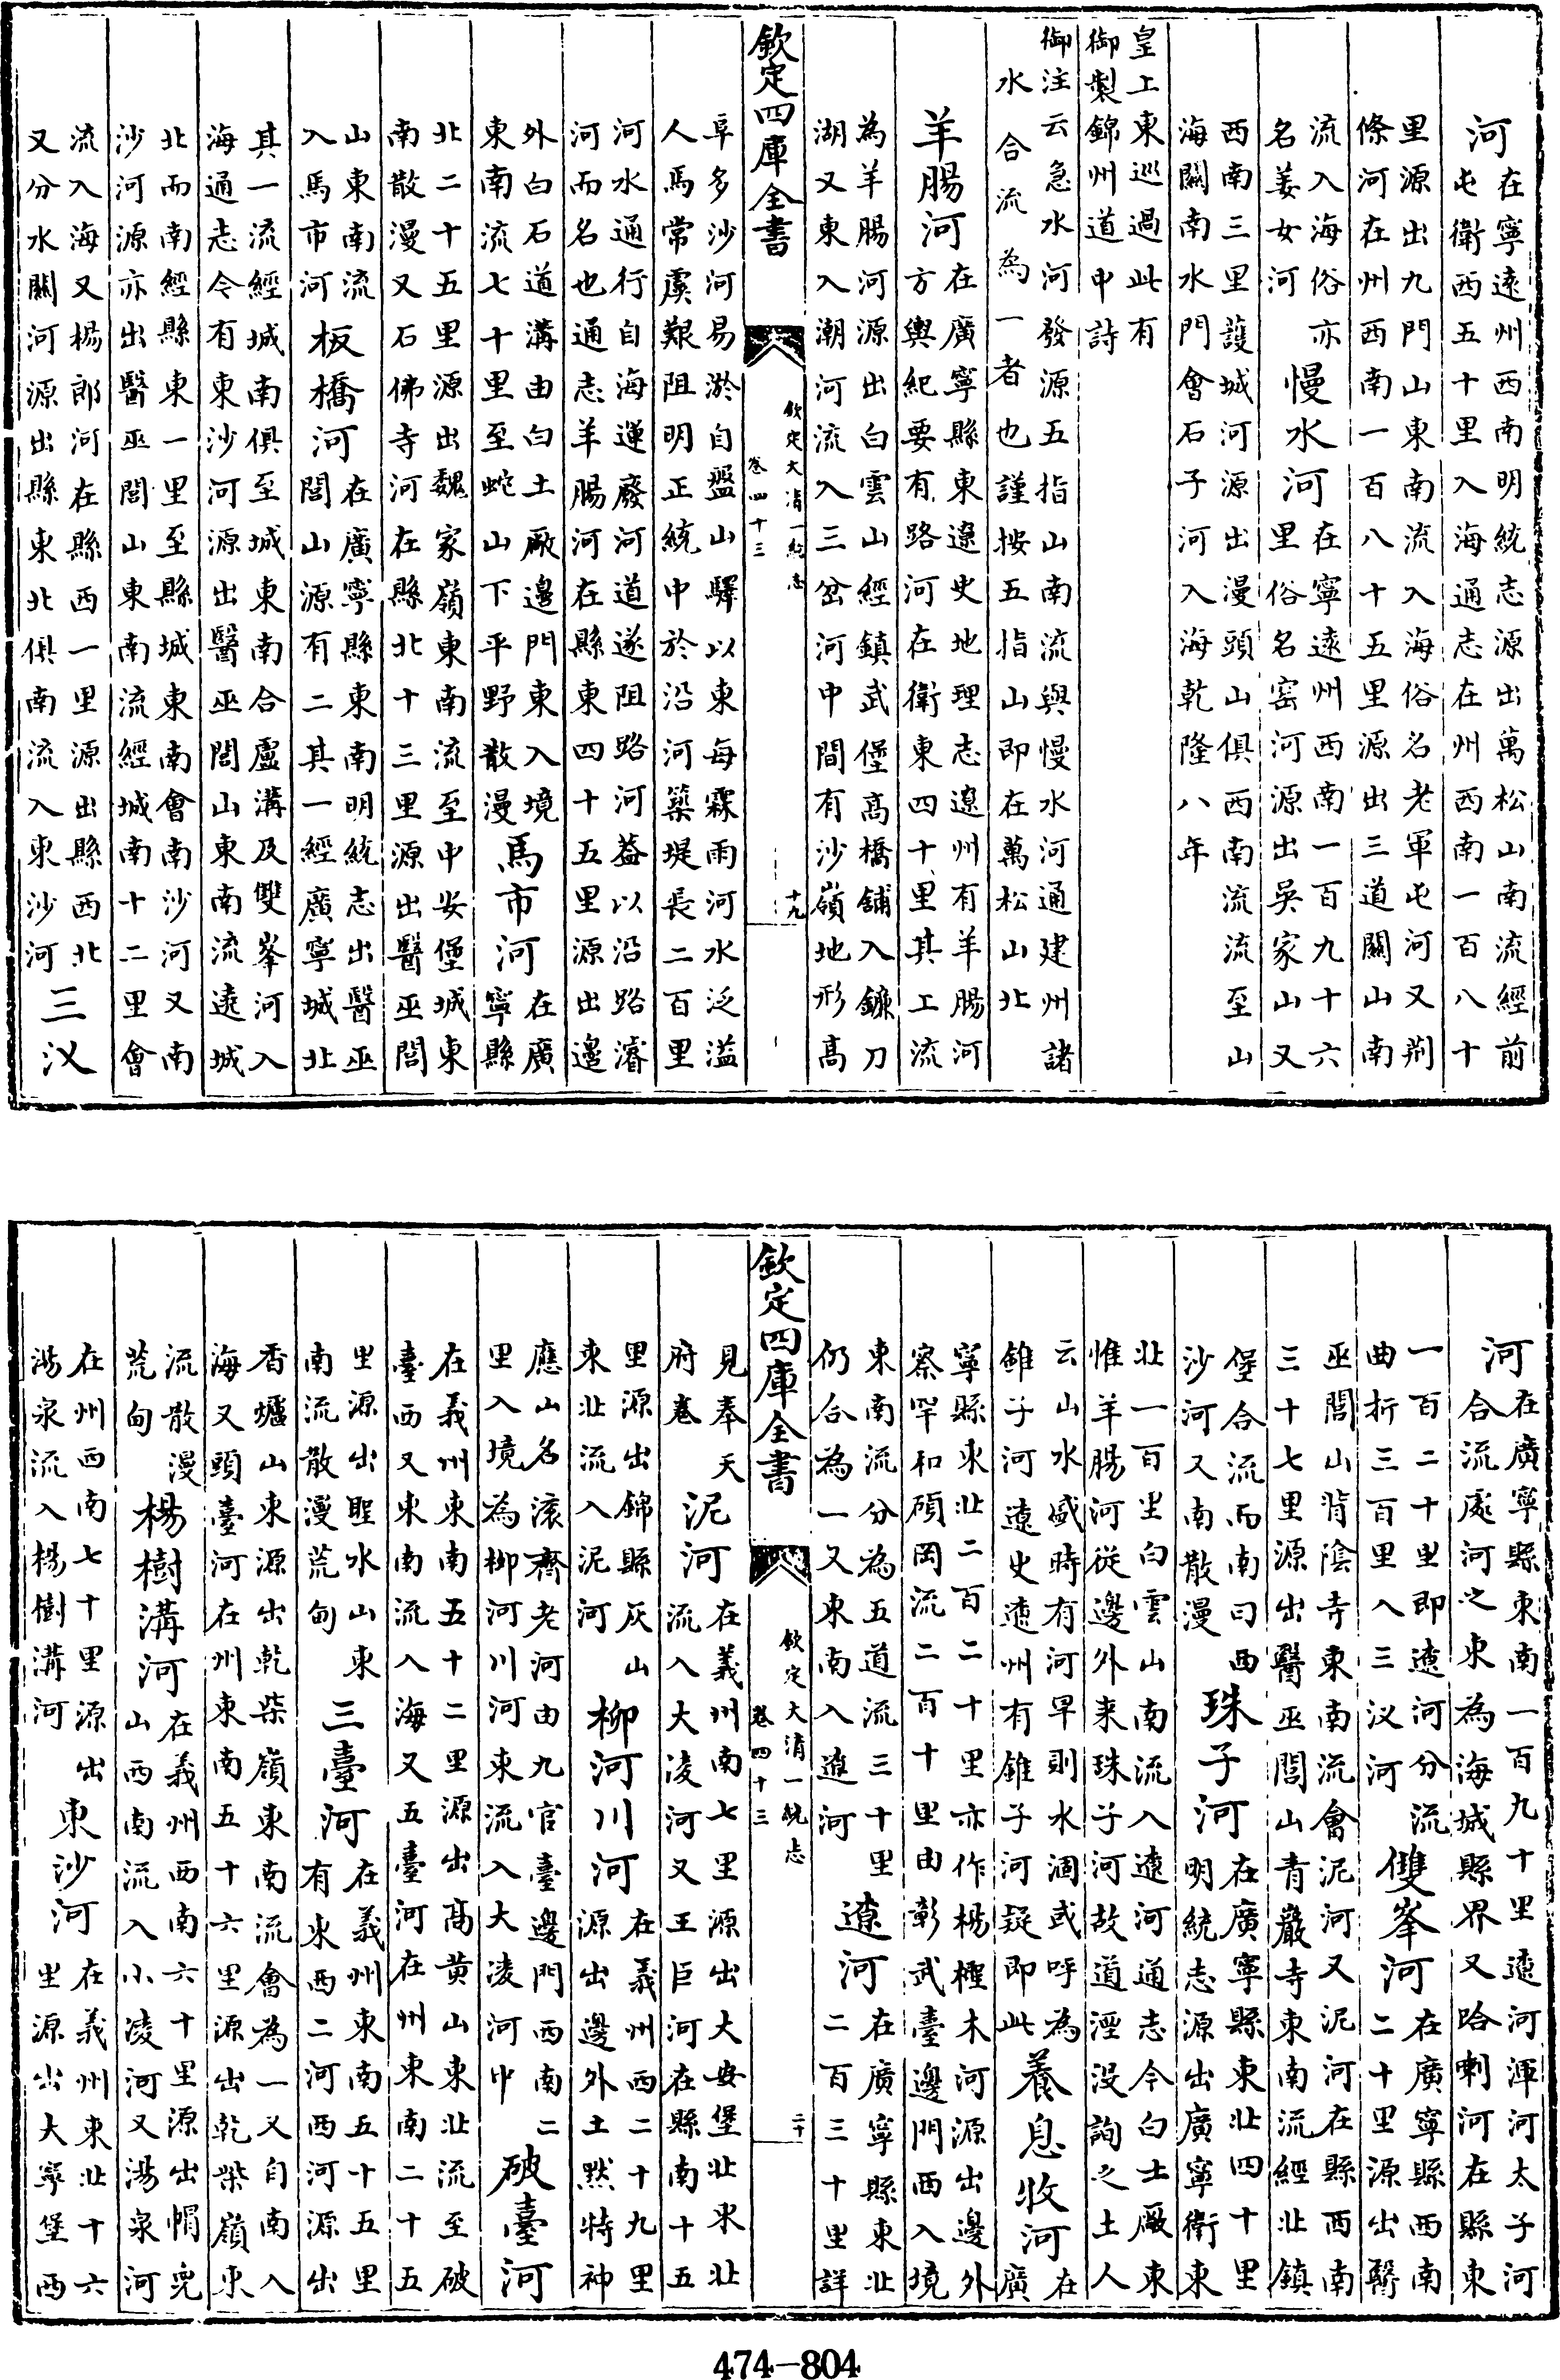 河在寧遠州西南明統志源出萬松山南流經前
屯衛西五十里入海通志在州西南一百八十
里源出九門山東南流入海俗名老軍屯河又荆
條河在州西南一百八十五里源出三道關山南
流入海俗亦
名姜女河
慢水河在寧遠州西南一百九十六
里俗名窑河源出吳家山又
西南三里䕶城河源出漫頭山俱西南流流至山
海關南水門會石子河入海乾隆八年
皇上東巡過此有
御製錦州道中詩
御注云急水河發源五指山南流與慢水河通建州諸
水合流為一者也謹按五指山即在萬松山北
羊腸河在廣寧縣東遼史地理志遼州有羊腸河
方輿紀要有路河在衛東四十里其工流
為羊腸河源出白雲山經鎮武堡髙橋舖入鐮刀
湖又東入潮河流入三岔河中間有沙嶺地形髙
欽定四庫全書
欽定大清一統志
卷四十三
十九
阜多沙河易淤自盤山驛以東每霖雨河水泛溢
人馬常虞艱阻明正統中於沿河築堤長二百里
河水通行自海運廢河道遂阻路河葢以沿路濬
河而名也通志羊腸河在縣東四十五里源出邊
外白石道溝由白土厰邊門東入境
東南流七十里至蛇山下平野散漫
馬市河在廣
寧縣
北二十五里源出魏家嶺東南流至中安堡城東
南散漫又石佛寺河在縣北十三里源出醫巫閭
山東南流
入馬市河
板橋河在廣寧縣東南明統志出醫巫
閭山源有二其一經廣寧城北
其一流經城南俱至城東南合盧溝及雙峯河入
海通志今有東沙河源出醫巫閭山東南流遶城
北而南經縣東一里至縣城東南會南沙河又南
沙河源亦出醫巫閭山東南流經城南十二里會
流入海又楊郎河在縣西一里源出縣西北
又分水關河源出縣東北俱南流入東沙河
三汊
河在廣寧縣東南一百九十里遼河渾河太子河
合流處河之東為海城縣界又哈喇河在縣東
一百二十里即遼河分流
曲折三百里入三汊河
雙峯河在廣寧縣西南
二十里源出醫
巫閭山背陰寺東南流會泥河又泥河在縣西南
三十七里源出醫巫閭山青巖寺東南流經北鎮
堡合流而南曰西
沙河又南散漫
珠子河在廣寧縣東北四十里
明統志源出廣寧衛東
北一百里白雲山南流入遼河通志今白士厰東
惟羊腸河從邊外来珠子河故道湮没詢之土人
云山水盛時有河旱則水涸武呼為
錐子河遼史遼州有錐子河疑即此
養息收河在
廣
寧縣東北二百二十里亦作楊檉木河源出邊外
察罕和碩岡流二百十里由彰武臺邊門西入境
東南流分為五道流三十里
仍合為一又東南入遼河
遼河在廣寧縣東北
二百三十里詳
欽定四庫全書
欽定大清一統志
卷四十三
二十
見奉天
府卷
泥河在義州南七里源出大安堡北東北
流入大凌河又王巨河在縣南十五
里源出錦縣灰山
東北流入泥河
柳河川河在義州西二十九里
源出邊外土黙特神
應山名滚齊老河由九官臺邊門西南二
里入境為柳河川河東流入大凌河中
破臺河
在義州東南五十二里源出髙黄山東北流至破
臺西又東南流入海又五臺河在州東南二十五
里源出聖水山東
南流散漫荒甸
三臺河在義州東南五十五里
有東西二河西河源出
香爐山東源出乾柴嶺東南流會為一又自南入
海又頭臺河在州東南五十六里源出乾柴嶺東
流散漫
荒甸
楊樹溝河在義州西南六十里源出帽兒
山西南流入小凌河又湯泉河
在州西南七十里源出
湯泉流入楊樹溝河
東沙河在義州東北十六
里源出大寧堡西
474-804